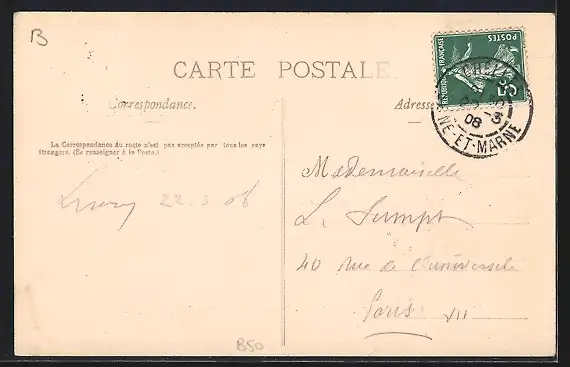 B
CARTE POSTALE
POSTES
FRANÇAISE
REPUBLIQUE
5c
08
NE-ET-MARNE
Correspondance.
Adresse
La Correspondance du recto n'est pas acceptée par tous les pays
étrangers. (Se renseigner à la Poste.)
22.3 08
Mademoiselle
L.
40 rue de l'université
Paris VII
B50